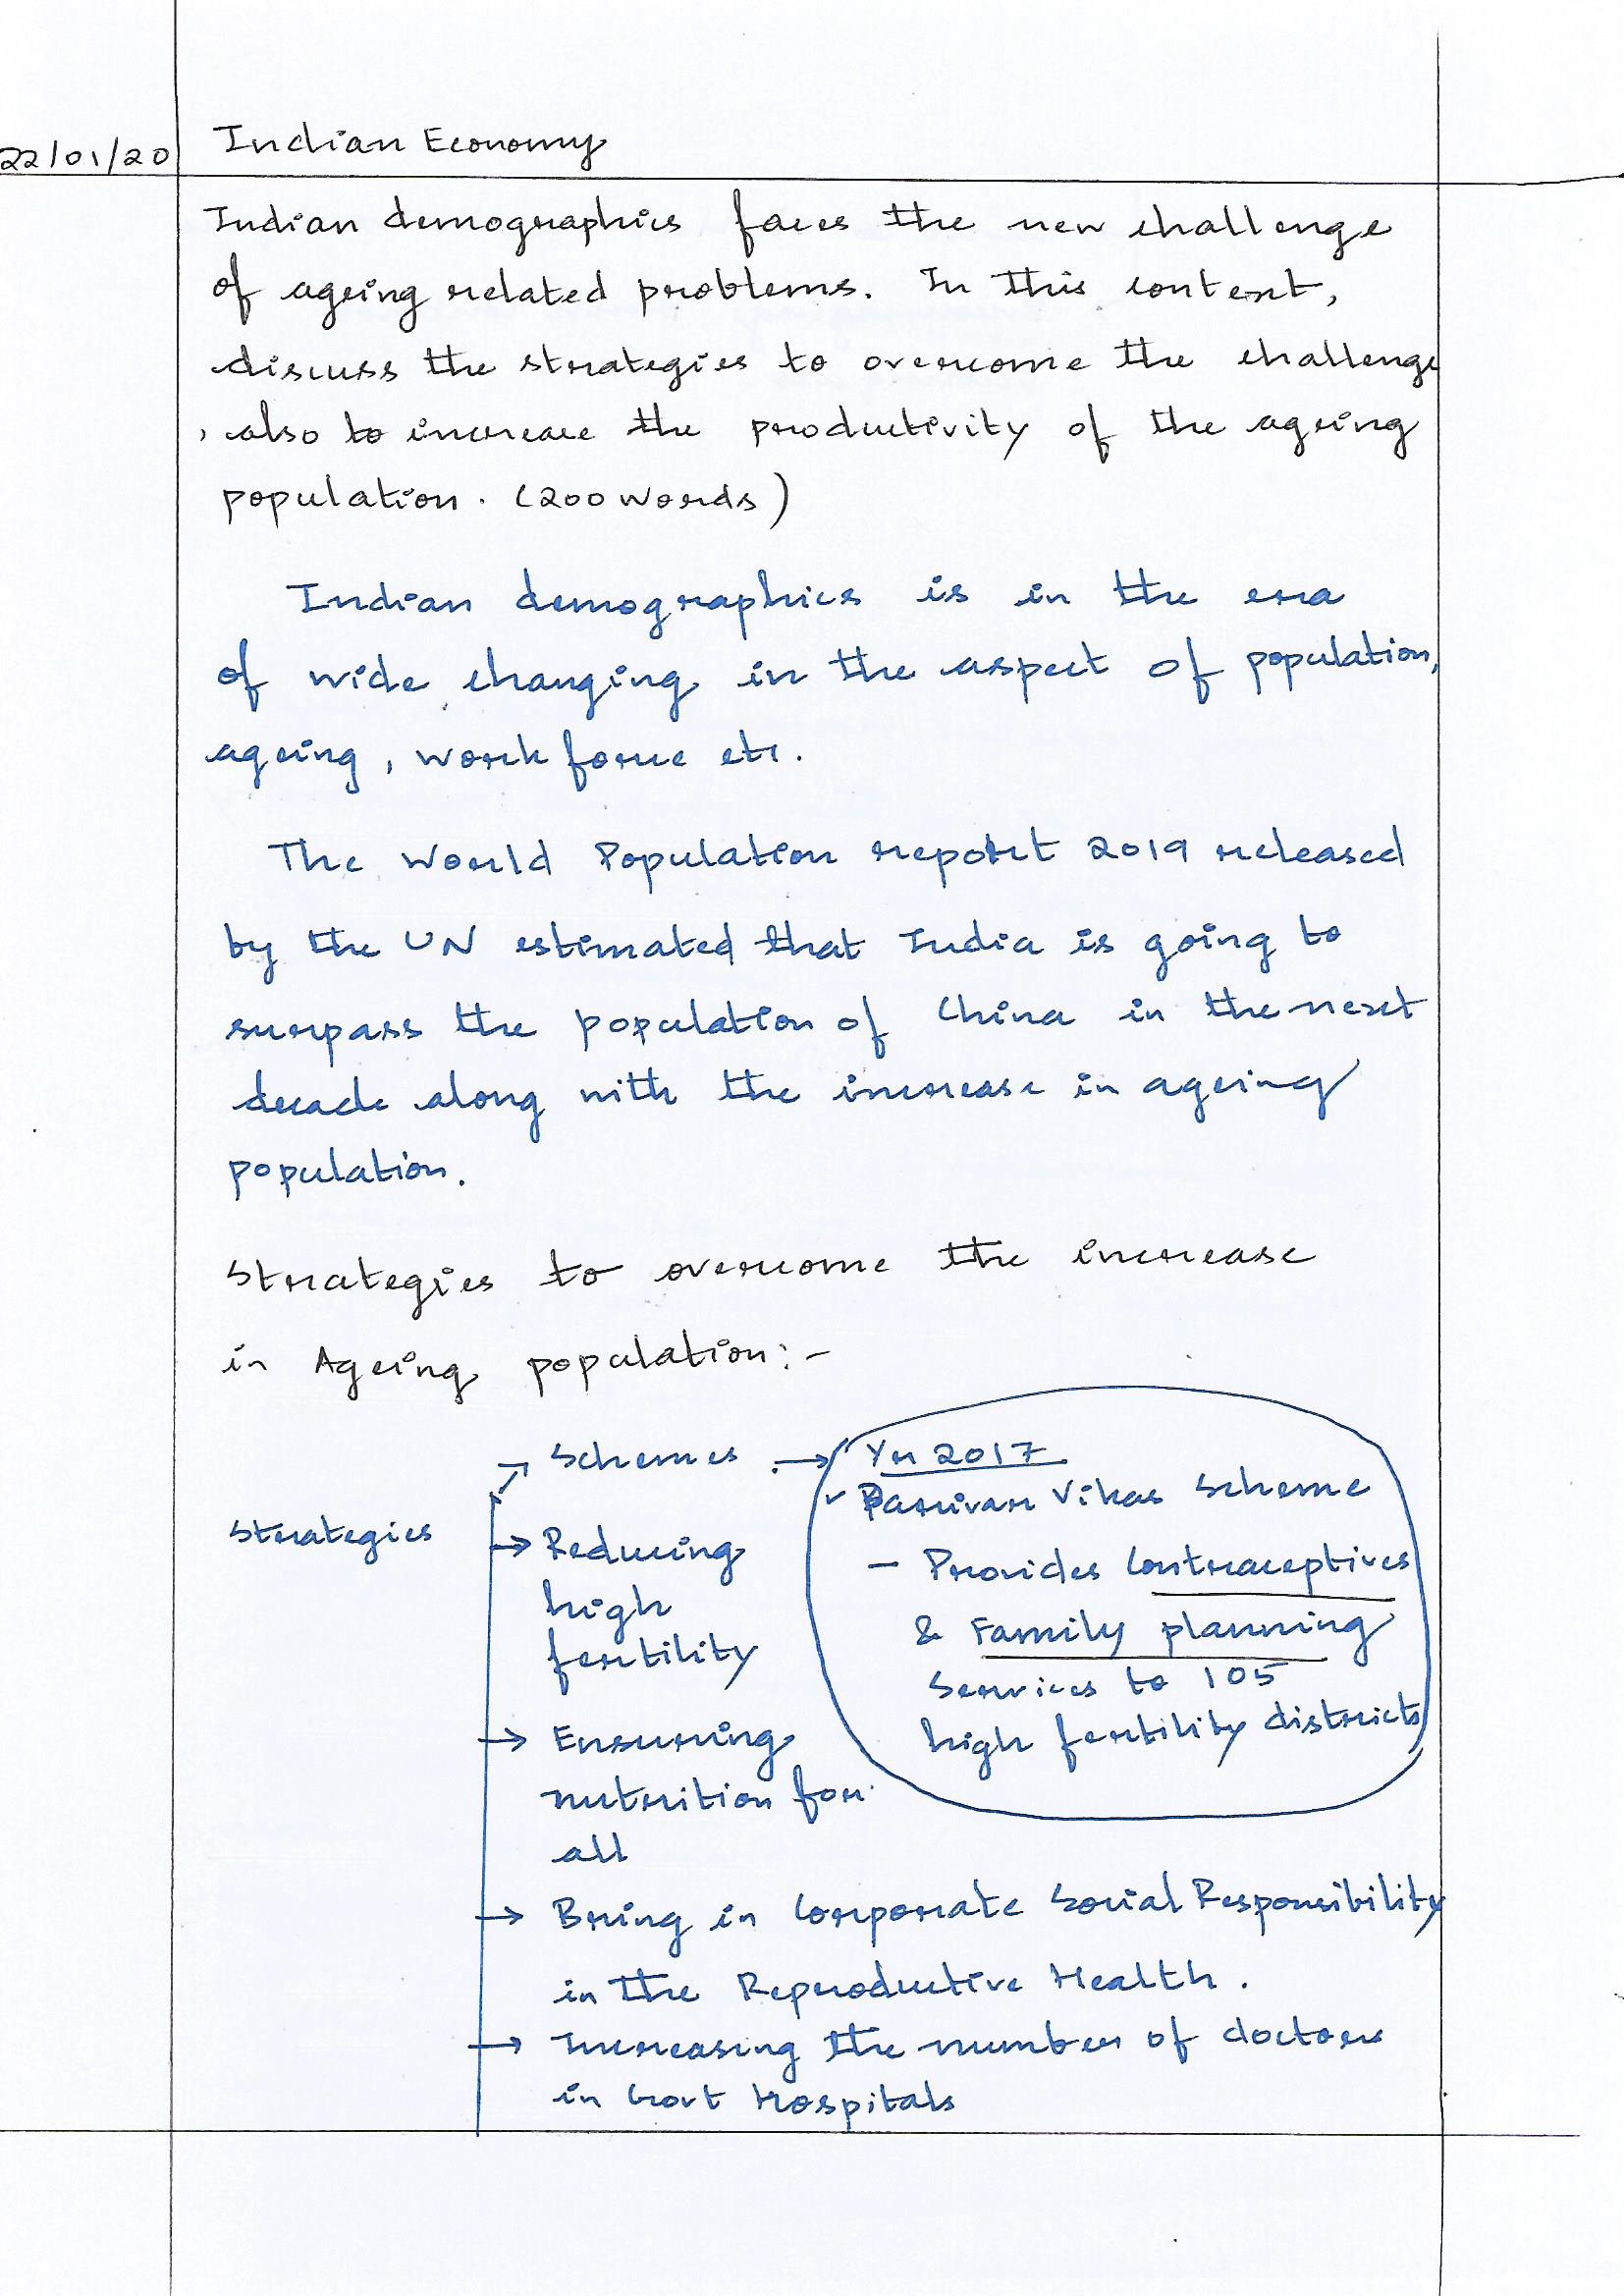 22/01/20
Indian Economy
Indian demographics faces the new challenge
of ageing related problems. In this context,
discuss the strategies to overcome the challenge
, also to increase the productivity of the ageing
population. (200 words)
Indian demographics is in the era
of wide changing in the aspect of population,
ageing, work force etc.
The World Population report 2019 released
by the UN estimated that India is going to
surpass the population of China in the next
decade along with the increase in ageing
population.
Strategies to overcome the increase
in Ageing population:-
Strategies
→ Schemes →
→ Reducing
high
fertility
→ Ensuring
nutrition for
all
→ Bring in Corporate Social Responsibility
in the Reproductive Health.
→ Increasing the number of doctors
in Govt Hospitals
Yr 2017
Parivar Vikas Scheme
- Provides Contraceptives
& Family planning
Services to 105
high fertility districts